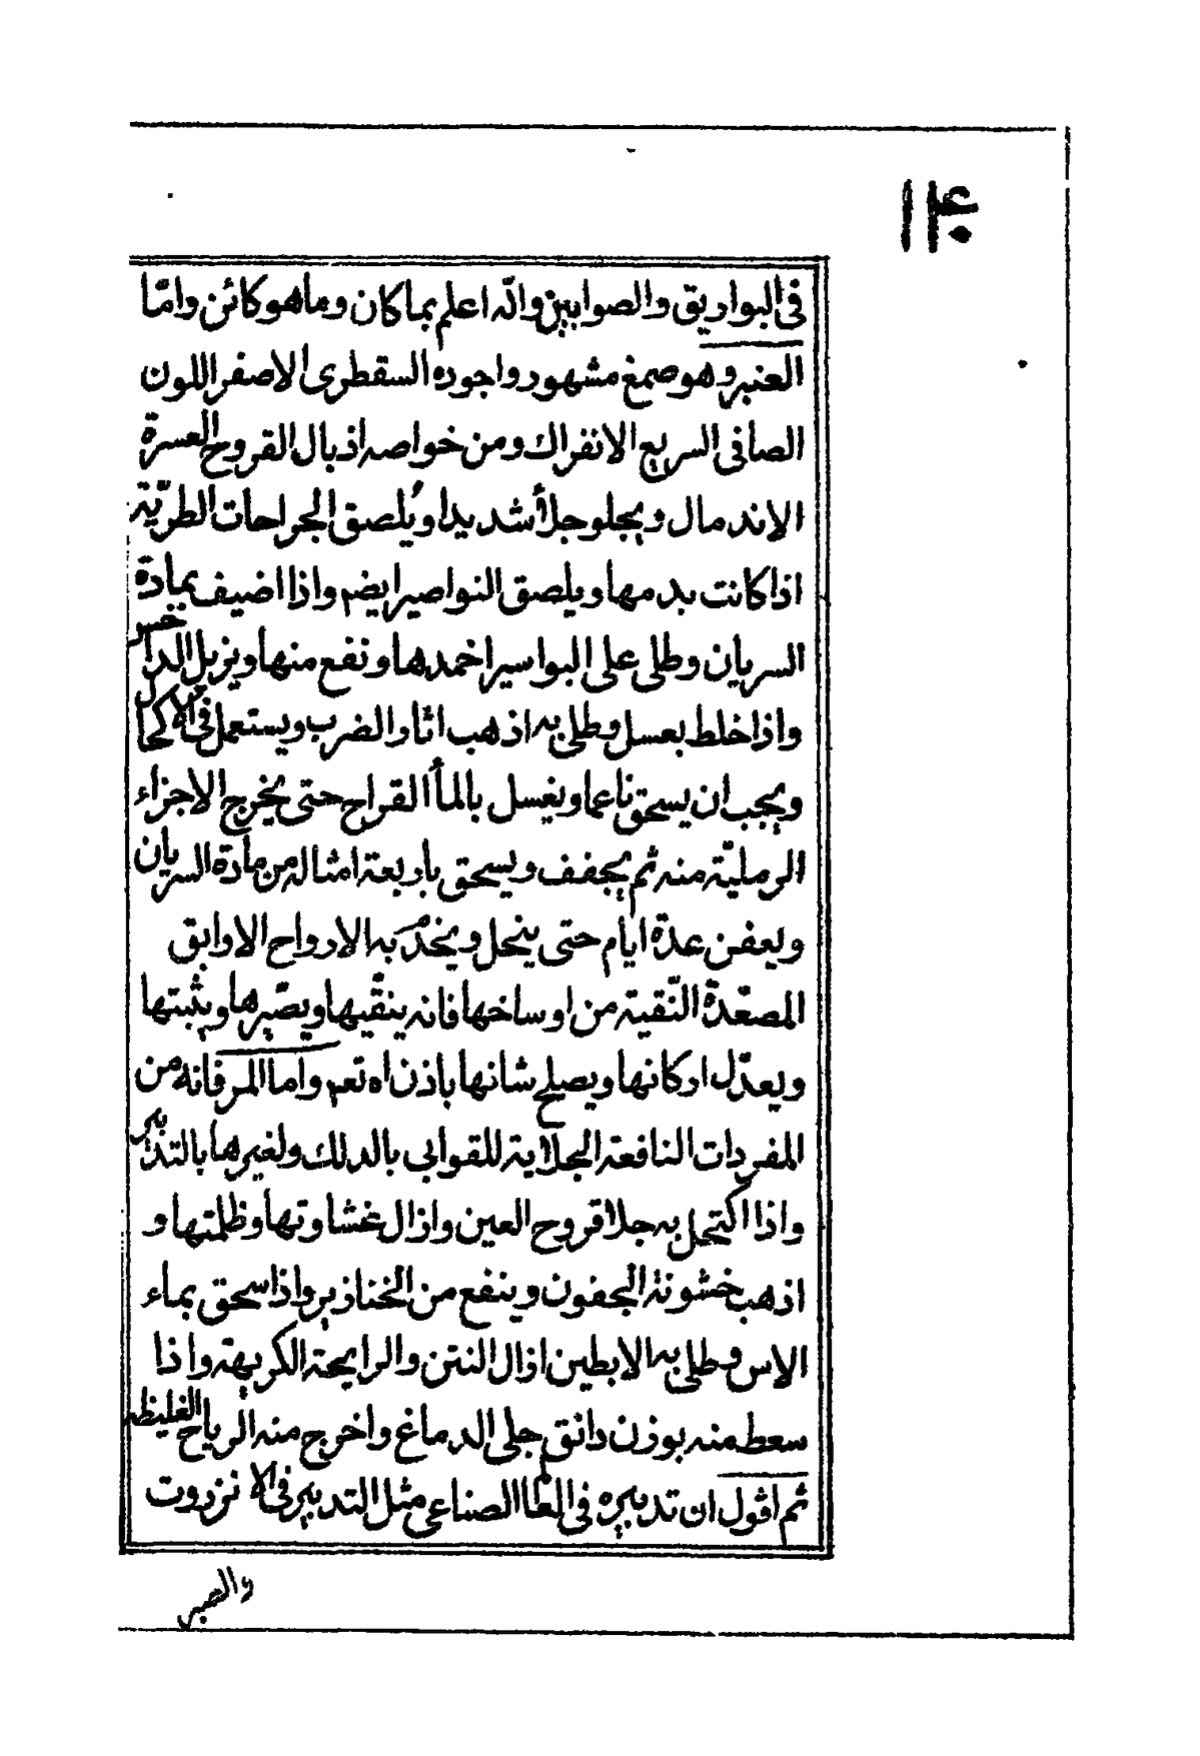 في البواريق والصوابين والله اعلم بما كان وما هو كائن وامّا
العنبر وهو صمغ مشهور واجوده السقطرى الاصفر اللون
الصافى السريع الانفراك ومن خواصه اذبال القروح العسرة
الاندمال ويجلو جلأ شديدا ويُلصق الجراحات الطريّة
اذا كانت بدمها ويلصق النواصير ايضم واذا اضيف بمادة
السريان وطلى على البواسير اخمدها ونفع منها ويزيل الداحس
واذا خلط بعسل وطلى به اذهب اثار الضرب ويستعمل فى الاكحال
ويجب ان يسحق ناعما ويغسل بالمأ القراح حتى يخرج الاجزاء
الرمليّة منه ثم يجفف ويسحق باربعة امثاله من مادة السريان
ويعفن عدة ايام حتى ينحل ويخدّم به الارواح الاوابق
المصعّدة النّقية من اوساخها فانه ينقّيها ويصّيرها ويثبتها
ويعدّل اركانها ويصلح شانها باذن اه تعم واما المر فانه من
المفردات النافعة الجلاية للقوابى بالدلك ولغيرها بالتدبير
واذا اكتحل به جلا قروح العين وازال غشاوتها وظلمتها و
اذهب خشونة الجفون وينفع من الخنازير واذا سحق بماء
الاس وطلى به الابطين ازال النتن والرايحة الكريهة واذا
سعط منه بوزن دانق جلى الدماغ واخرج منه الرياح الغليظه
ثم اقول ان تدبيره فى العا الصناعى مثل التدبير فى الانزروت
والصبر